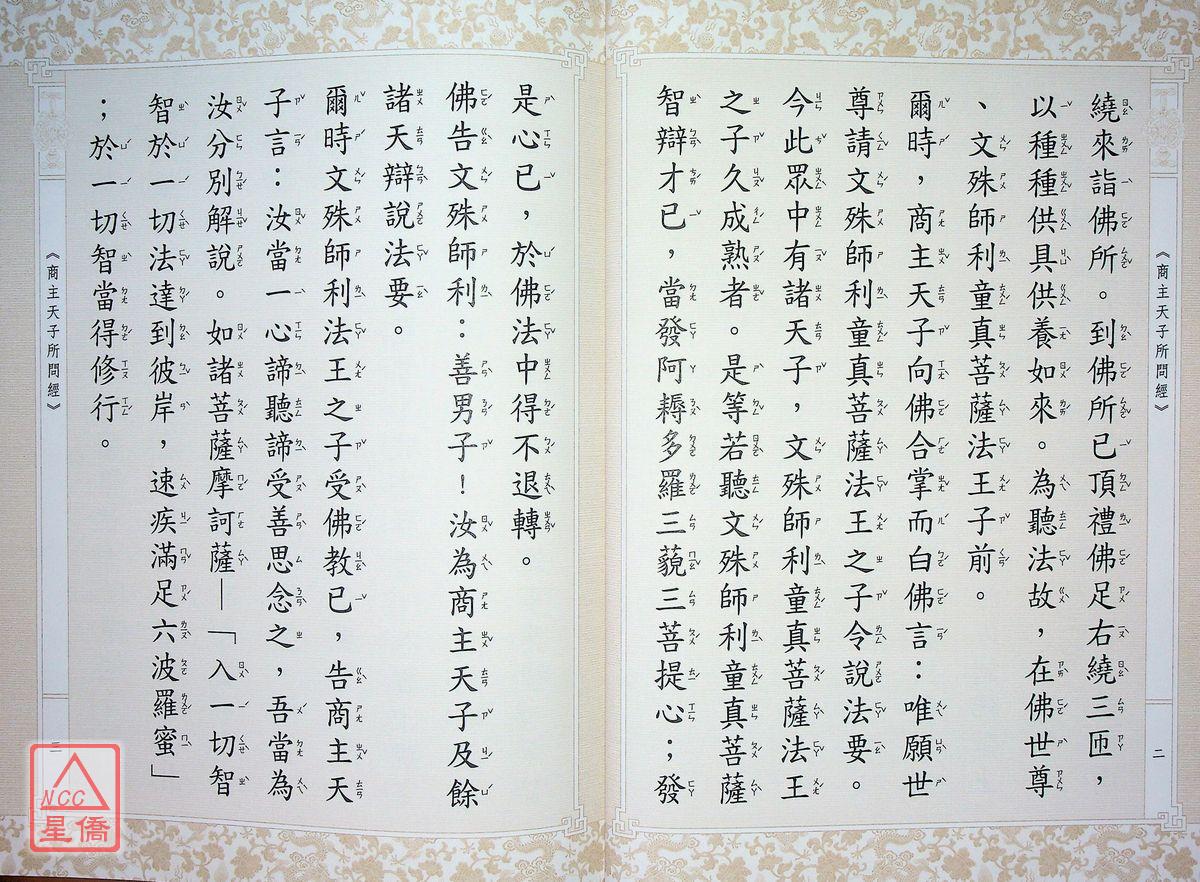 《商主天子所問經》
二
繞來詣佛所。到佛所已頂禮佛足右繞三匝，
以種種供具供養如來。為聽法故，在佛世尊
、文殊師利童真菩薩法王子前。
爾時，商主天子向佛合掌而白佛言：唯願世
尊請文殊師利童真菩薩法王之子令說法要。
今此眾中有諸天子，文殊師利童真菩薩法王
之子久成熟者。是等若聽文殊師利童真菩薩
智辯才已，當發阿耨多羅三藐三菩提心；發
是心已，於佛法中得不退轉。
佛告文殊師利：善男子！汝為商主天子及餘
諸天辯說法要。
爾時文殊師利法王之子受佛教已，告商主天
子言：汝當一心諦聽諦受善思念之，吾當為
汝分別解說。如諸菩薩摩訶薩—「入一切智
智於一切法達到彼岸，速疾滿足六波羅蜜」
；於一切智當得修行。
《商主天子所問經》
三
NCC
星僑